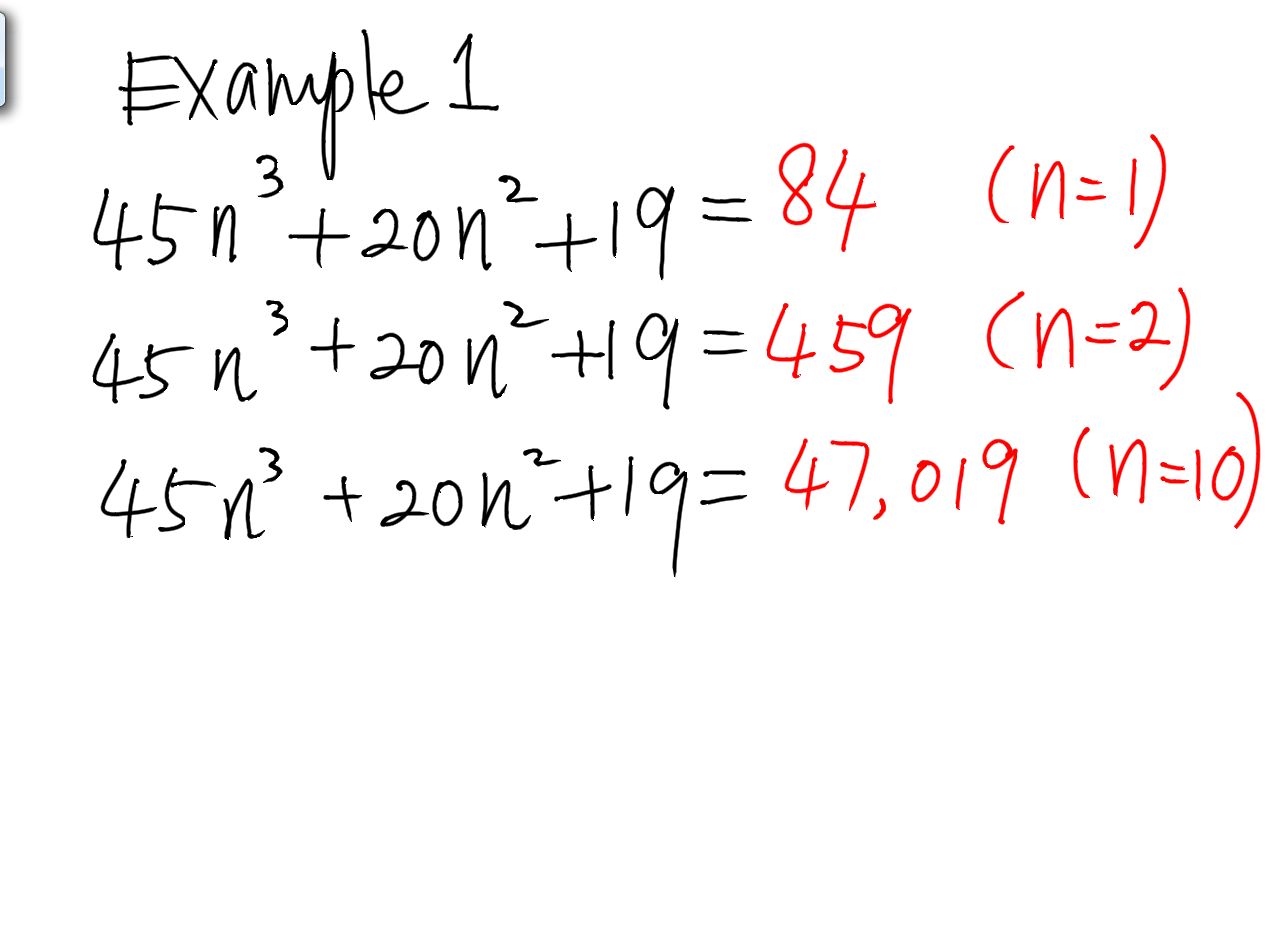 Example 1
45n³+20n²+19=84 (n=1)
45n³+20n²+19=459 (n=2)
45n³+20n²+19=47,019 (n=10)